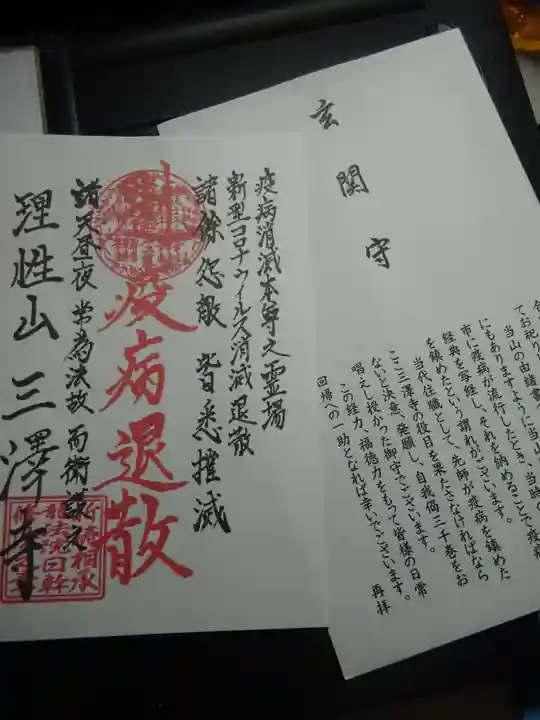 疫病消滅本尊之霊場
新型コロナウイルス消滅退散
諸餘怨敵 皆悉摧滅
疫病退散
諸天昼夜 常為法故 而衛護之
理性山 三澤寺
玄関守
てお祀りし
当山の由緒書
にもありますように、当山
市に疫病が流行したとき、当時の
経典を写経し、それを納めることで疫病
を鎮めたという謂れがございます。
当代住職として、先師が疫病を鎮めた
ここ三澤寺の役目を果たさなければなら
ないと決意、発願し、自我偈三千巻をお
唱えし授かった御守でございます。
この経力、福徳力をもって皆様の日常
回帰への一助となれば幸いでございます。
再拝